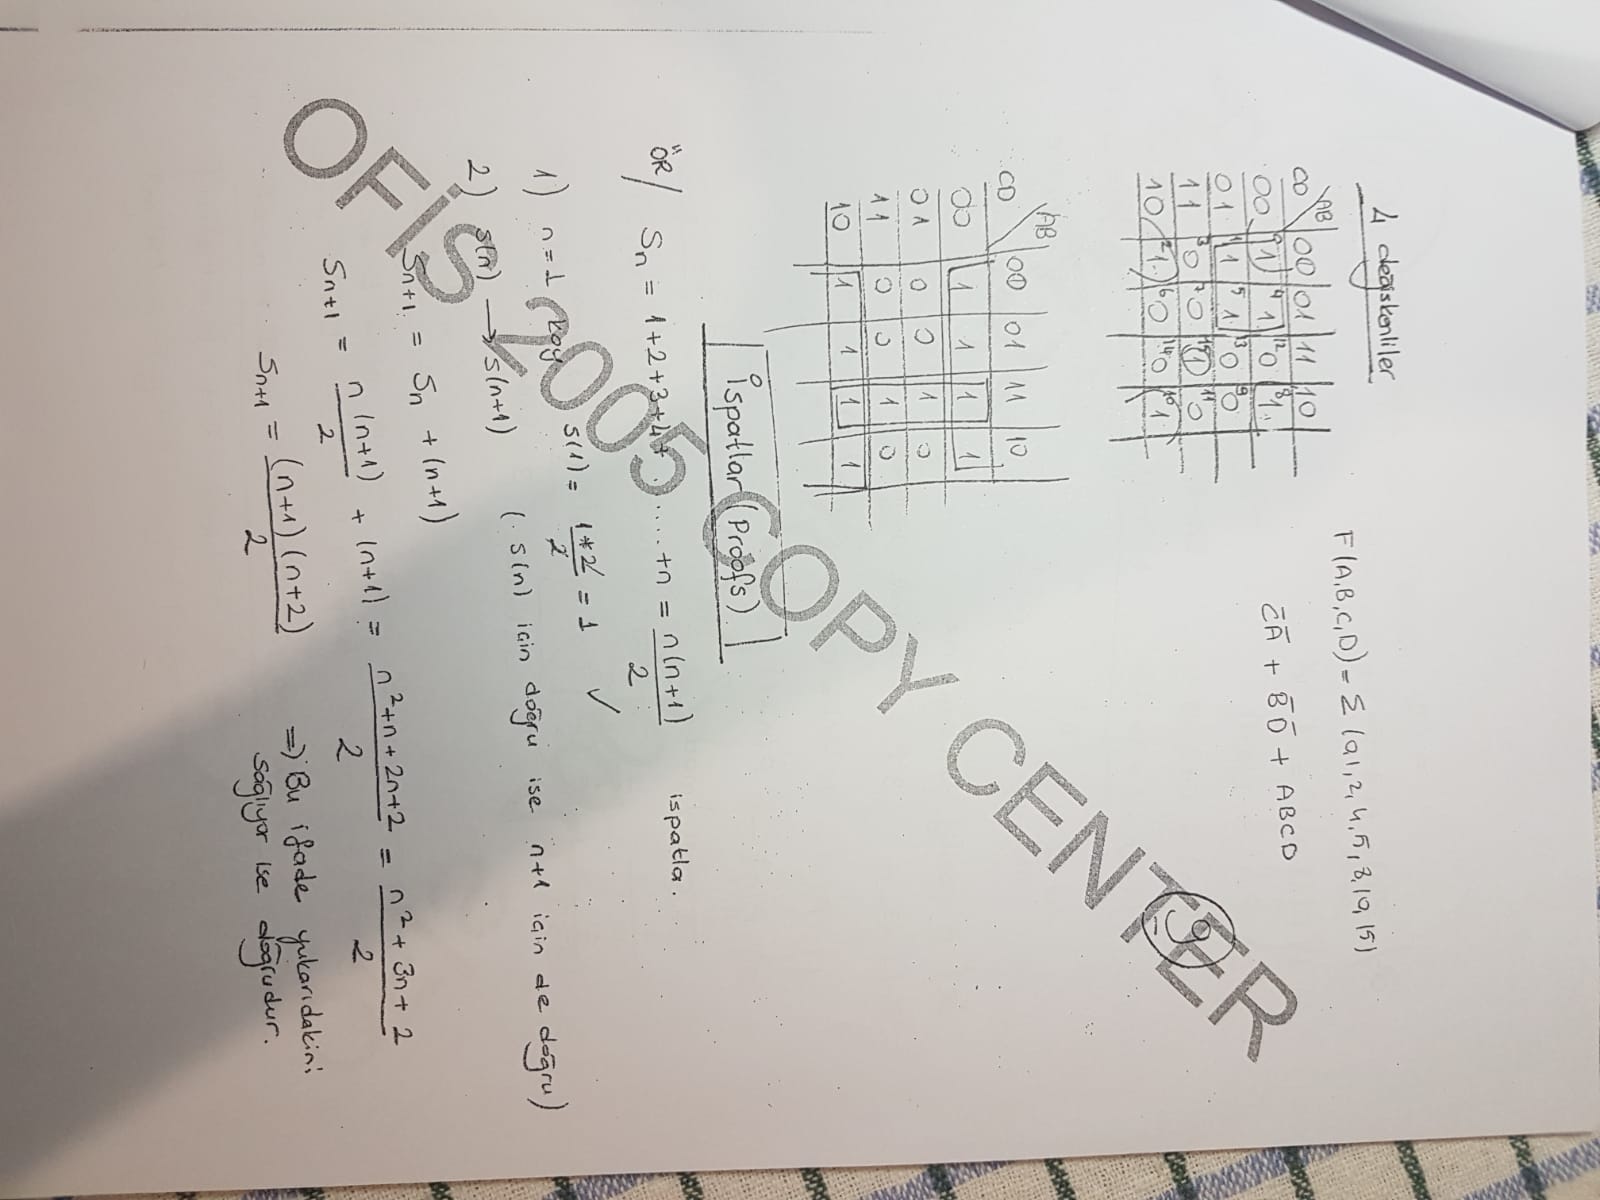 4 değişkenliler
F(A,B,C,D) = Σ (0,1,2,4,5,8,10,15)
C̄Ā + B̄D̄ + ABCD
9
AB
CD 00 01 11 10
00 0 1 4 1 12 0 8 1
01 1 1 5 1 13 0 9 0
11 3 0 7 0 15 1 11 0
10 2 1 6 0 14 0 10 1
AB
CD 00 01 11 10
00 1 1 1 1
01 0 0 1 0
11 0 0 1 0
10 1 1 1 1
İspatlar (Proofs)
ÖR/ Sn = 1+2+3+4+ ..... +n = n(n+1)/2 ispatla.
1) n=1 koy S(1) = 1*2/2 = 1 ✓
2) S(n) → S(n+1) (S(n) için doğru ise n+1 için de doğru)
Sn+1 = Sn + (n+1)
Sn+1 = n(n+1)/2 + (n+1) = n²+n+2n+2/2 = n²+3n+2/2
Sn+1 = (n+1)(n+2)/2 => Bu ifade yukarıdakini
sağlıyor ise doğrudur.
OFİS 2005 COPY CENTER